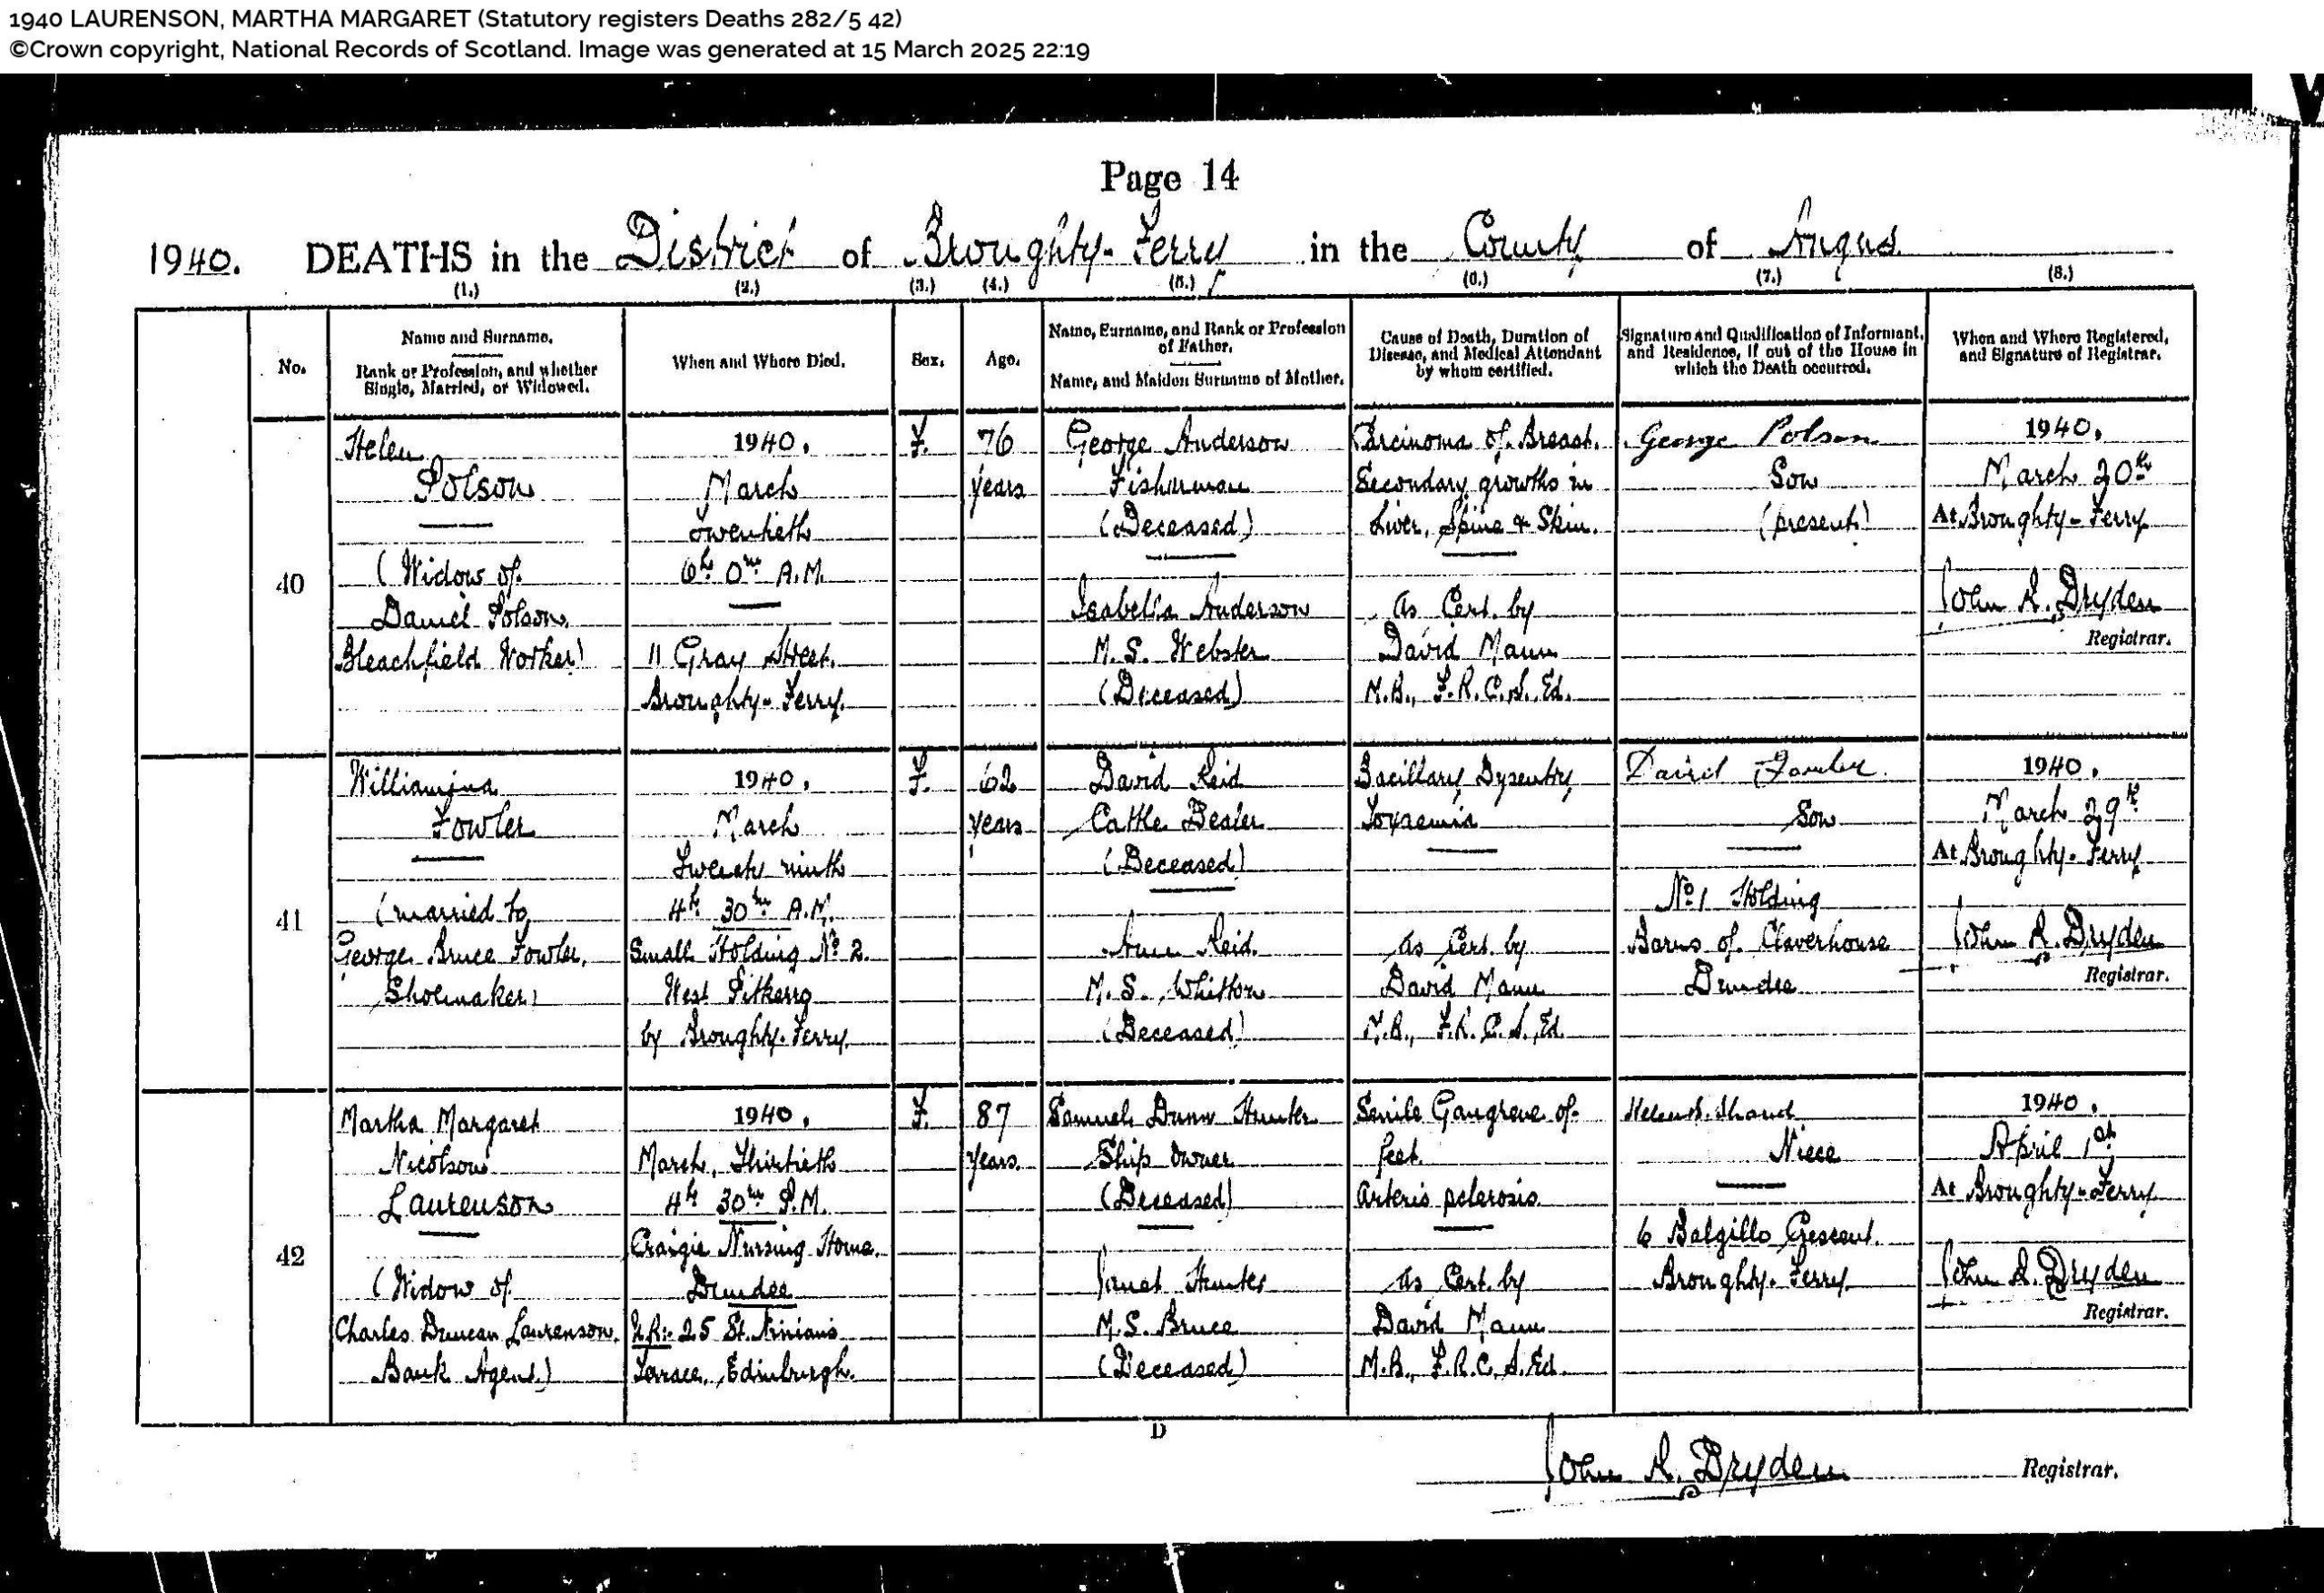 1940 LAURENSON, MARTHA MARGARET (Statutory registers Deaths 282/5 42)
©Crown copyright, National Records of Scotland. Image was generated at 15 March 2025 22:19
Page 14
1940. DEATHS in the District of Broughty-Ferry in the County of Angus
(1.) (2.) (3.) (4.) (5.) (6.) (7.) (8.)
No.
Name and Surname.
Rank or Profession, and whether
Single, Married, or Widowed.
When and Where Died.
Sex.
Age.
Name, Surname, and Rank or Profession
of Father.
Name, and Maiden Surname of Mother.
Cause of Death, Duration of
Disease, and Medical Attendant
by whom certified.
Signature and Qualification of Informant,
and Residence, if out of the House in
which the Death occurred.
When and Where Registered,
and Signature of Registrar.
40
Helen
Polson
(Widow of
Daniel Polson,
Bleachfield Worker)
1940.
March
Twentieth
6h. 0m. A.M.
11 Gray Street,
Broughty-Ferry.
F.
76
years
George Anderson
Fisherman
(Deceased)
Isabella Anderson
M.S. Webster
(Deceased)
Carcinoma of Breast.
Secondary growths in
Liver, Spine & Skin.
As Cert. by
David Mann
M.B., F.R.C.S. Ed.
George Polson
Son
(present)
1940.
March 20th
At Broughty-Ferry
John R. Dryden
Registrar.
41
Williamina
Fowler
(married to
George Bruce Fowler,
Shoemaker)
1940.
March
Twenty ninth
4h. 30m. A.M.
Small Holding No 2.
West Pitkerro
by Broughty-Ferry.
F.
62
years
David Reid
Cattle Dealer
(Deceased)
Ann Reid.
M.S. Whitton
(Deceased)
Bacillary Dysentry,
Toxaemia
As Cert. by
David Mann
M.B., F.R.C.S. Ed.
David Fowler
Son
No 1 Holding
Barns of Claverhouse
Dundee
1940.
March 29th
At Broughty-Ferry
John R. Dryden
Registrar.
42
Martha Margaret
Nicolson
Laurenson
(Widow of
Charles Duncan Laurenson,
Bank Agent)
1940.
March, Thirtieth
4h. 30m. P.M.
Craigie Nursing Home,
Dundee
U.R:- 25 St. Ninians
Terrace, Edinburgh.
F.
87
years
Samuel Dunn Hunter
Ship Owner
(Deceased)
Janet Hunter
M.S. Bruce
(Deceased)
Senile Gangrene of
feet.
Arterio sclerosis.
As Cert. by
David Mann
M.B., F.R.C.S. Ed.
Shand
Niece
6 Balgillo Crescent.
Broughty-Ferry
1940.
April 1st
At Broughty-Ferry
John R. Dryden
Registrar.
D
John R. Dryden Registrar.